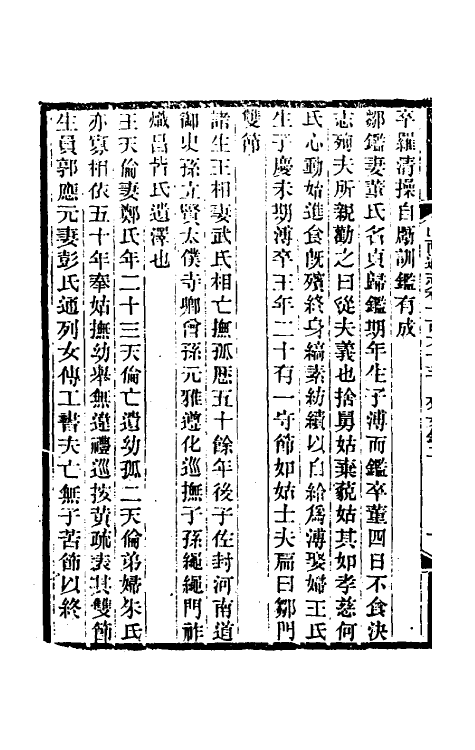 卒羅清操自勵訓鑑有成
鄒鑑妻董氏名貞歸鑑期年生子溥而鑑卒董四日不食決
志殉夫所親勸之曰從夫義也捨舅姑棄藐姑其如孝慈何
氏心動始進食旣殯終身縞素紡績以自給爲溥娶婦王氏
生子慶未期溥卒王年二十有一守節如姑士夫扁曰鄒門
雙節
諸生王相妻武氏相亡撫孤歷五十餘年後子佐封河南道
御史孫立賢太僕寺卿曾孫元雅遵化巡撫子孫繩繩門祚
熾昌皆氏遺澤也
王天倫妻鄭氏年二十三天倫亡遺幼孤二天倫弟婦朱氏
亦寡相依五十年奉姑撫幼舉無違禮巡按黃疏表其雙節
生員郭應元妻彭氏通列女傳工書夫亡無子苦節以終